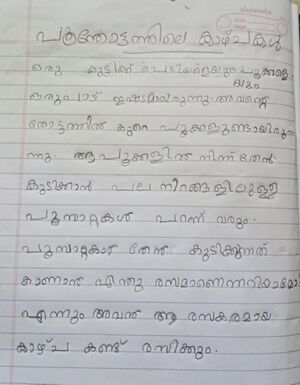 പൂന്തോട്ടത്തിലെ കാഴ്ചകൾ
ഒരു കുട്ടിക്ക് ചെടിയളെയും പൂക്കളെ
യും
ഒരുപാട് ഇഷ്ടമായിരുന്നു. അവന്റെ
തോട്ടത്തിൽ കുറെ പൂക്കളുണ്ടായിരു
ന്നു. ആ പൂക്കളിൽ നിന്ന് തേൻ
കുടിക്കാൻ പല നിറങ്ങളിലുള്ള
പൂമ്പാറ്റകൾ പറന്ന് വരും.
പൂമ്പാറ്റകൾ തേൻ കുടിക്കുന്നത്
കാണാൻ എന്തു രസമാണെന്നറിയാമോ
എന്നും അവൻ ആ രസകരമായ
കാഴ്ച കണ്ട് രസിക്കും.